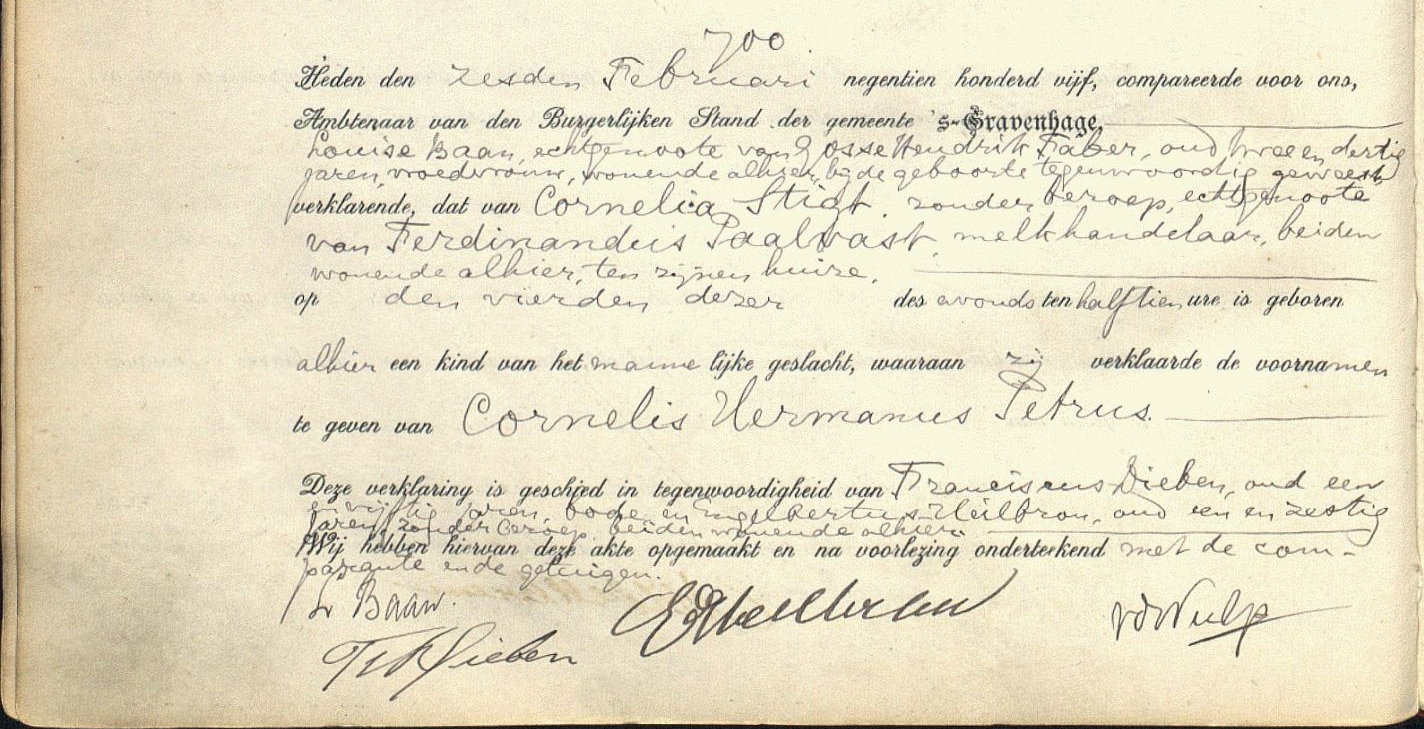 700
Heden den zesden Februari negentien honderd vijf, compareerde voor ons,
Ambtenaar van den Burgerlijken Stand der gemeente 's-Gravenhage,
Louise Baan, echtgenoote van Gosse Hendrik Faber, oud twee en dertig
jaren, vroedvrouw, wonende alhier, bij de geboorte tegenwoordig geweest,
verklarende, dat van Cornelia Stigt, zonder beroep, echtgenoote
van Ferdinandus Paalvast, melkhandelaar, beiden
wonende alhier, ten zijnen huize,
op den vierden dezer des avonds ten half tien ure is geboren
alhier een kind van het manne lijke geslacht, waaraan zij verklaarde de voornamen
te geven van Cornelis Hermanus Petrus.
Deze verklaring is geschied in tegenwoordigheid van Franciscus Dieben, oud een
en vijftig jaren, bode en Engelbertus Heilbron, oud een en zestig
jaren, zonder beroep, beiden wonende alhier.
Wij hebben hiervan deze akte opgemaakt en na voorlezing onderteekend met de com-
parante en de getuigen.
L Baan.
Dieben
vdWulp